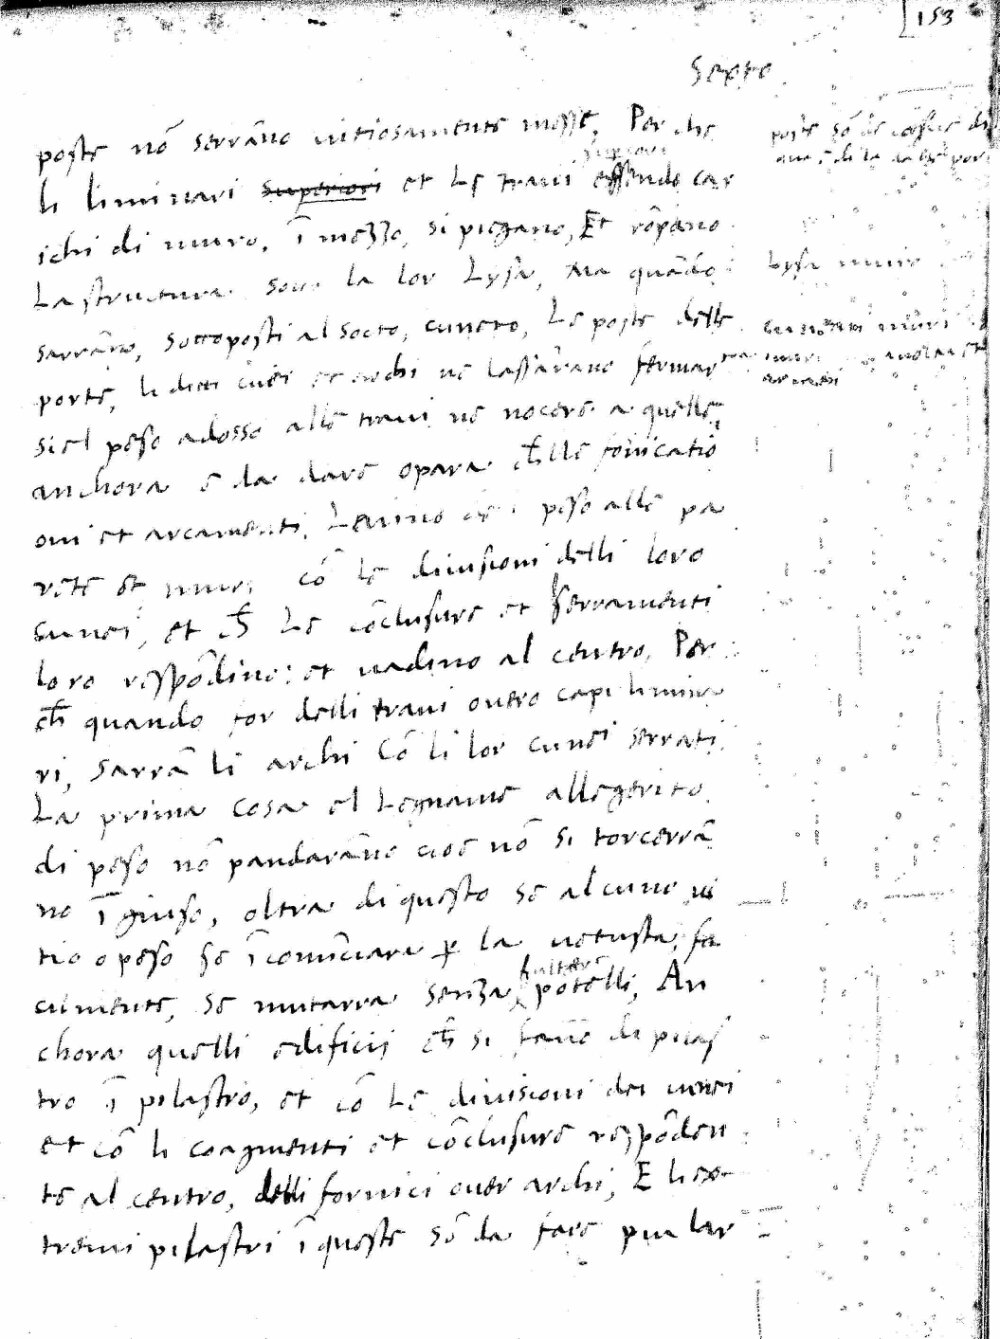 153
Sexto
poste nō serrāno uitiosamente messe, Per che
li liminari superiori et le traui essendo car
superiori
ichi di muro, ī mezzo, si piegano, Et rōpano
La structura sotto la lor Lysa, Ma quādo
Lysa muro
sarrāno, sottoposti al socto, cuneto, Le poste delle
cuneati muri
porte, li dicti cunei et archi nō lassarano fermar
si el peso adosso alle traui ne nocere a quelle
anchora e da dare opara ch̄ lle fornicatio
oni et arcamenti, Leuino el peso alle pa
rete et muri cō le diuisioni delli loro
cunei, et ch̄ Le cōclusure et serramenti
loro respōdino: et uadino al centro, Per
ch̄ quando for delli traui outro capi limina
ri, sarrā li archi cō li lor cunei serrati
La prima cosa el Legname allegerito
di peso nō pandarāno cioe nō si torcerrā
no ī giuso, oltra di questo se alcuno ui
tio o peso se ī comīciara ꝑ la uetusta, fa
cilmente, se mutarra senza potelli, An
fulture
chora quelli edificij ch̄ si fāno di pilas
tro ī pilastro, et cō le diuisioni dei cunei
et cō li coagmenti et cōclusure respōden
te al centro, delli fornici ouer archi, E li ex
tremi pilastri ī queste sō da fare piu lar